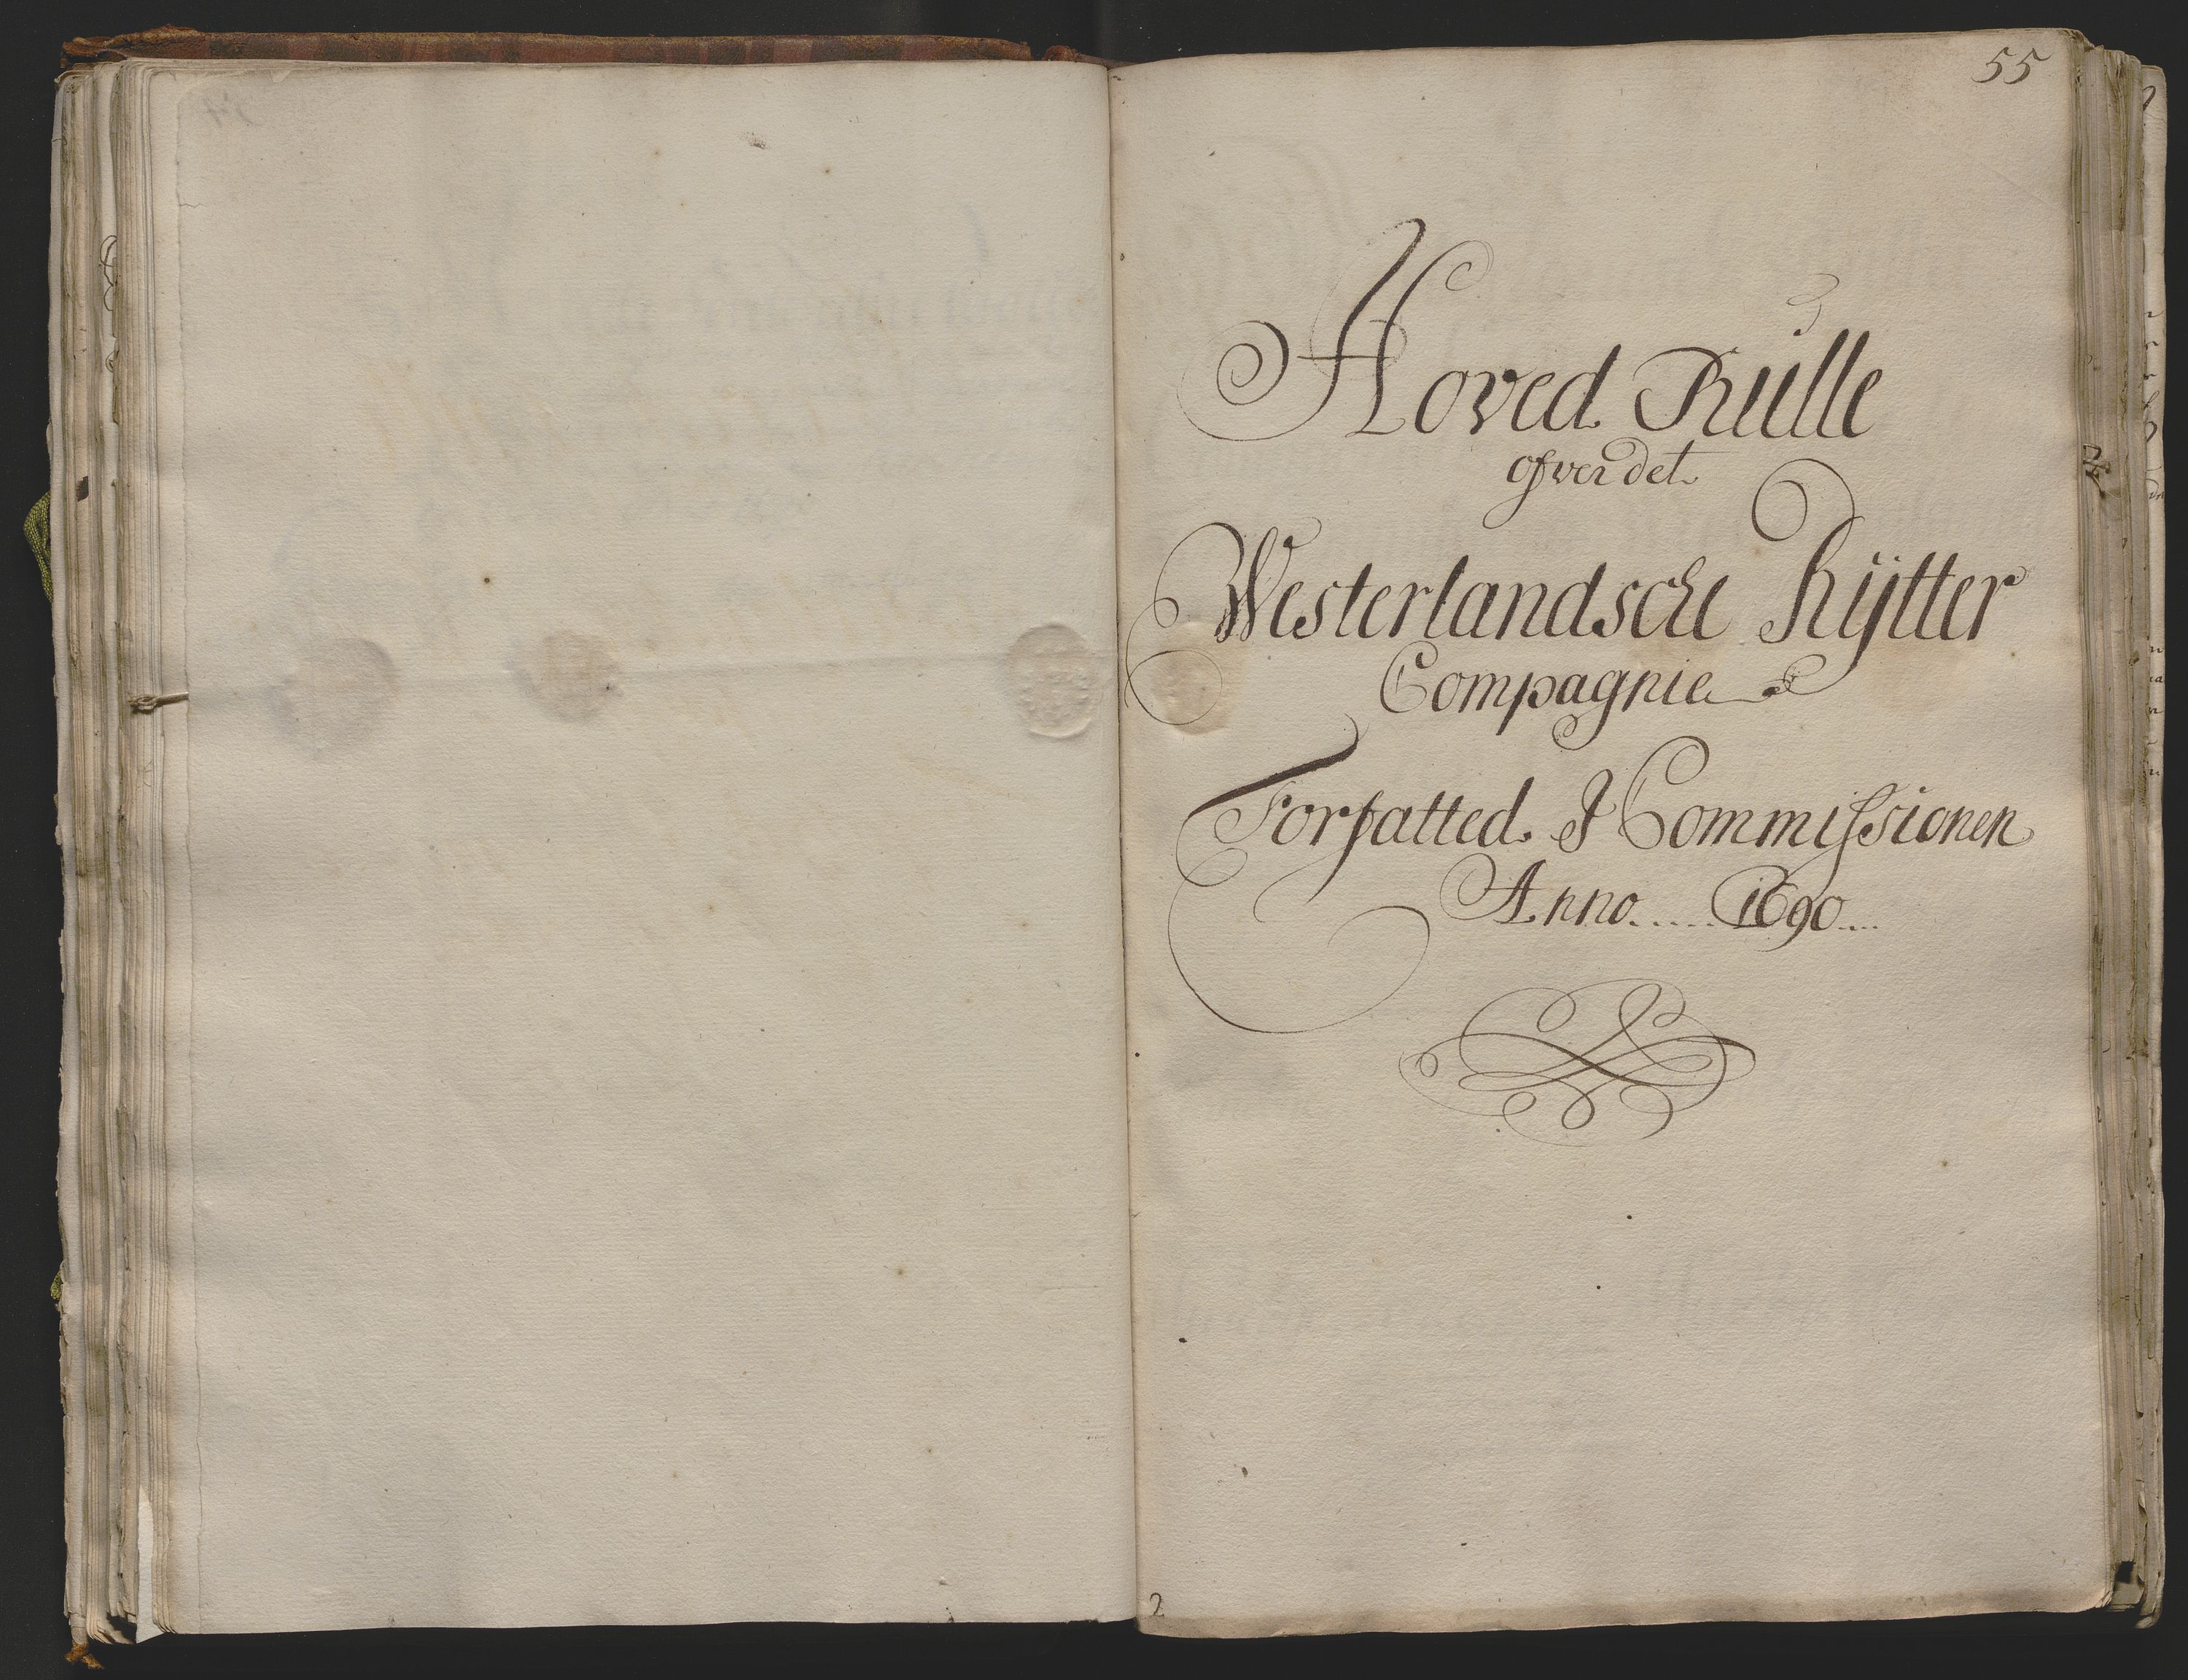 55
Hoved Rulle
ofver det
Westerlandsche Rÿtter
Compagnie
Forfatted I Commissionen
Anno ..... 1690 ...
2